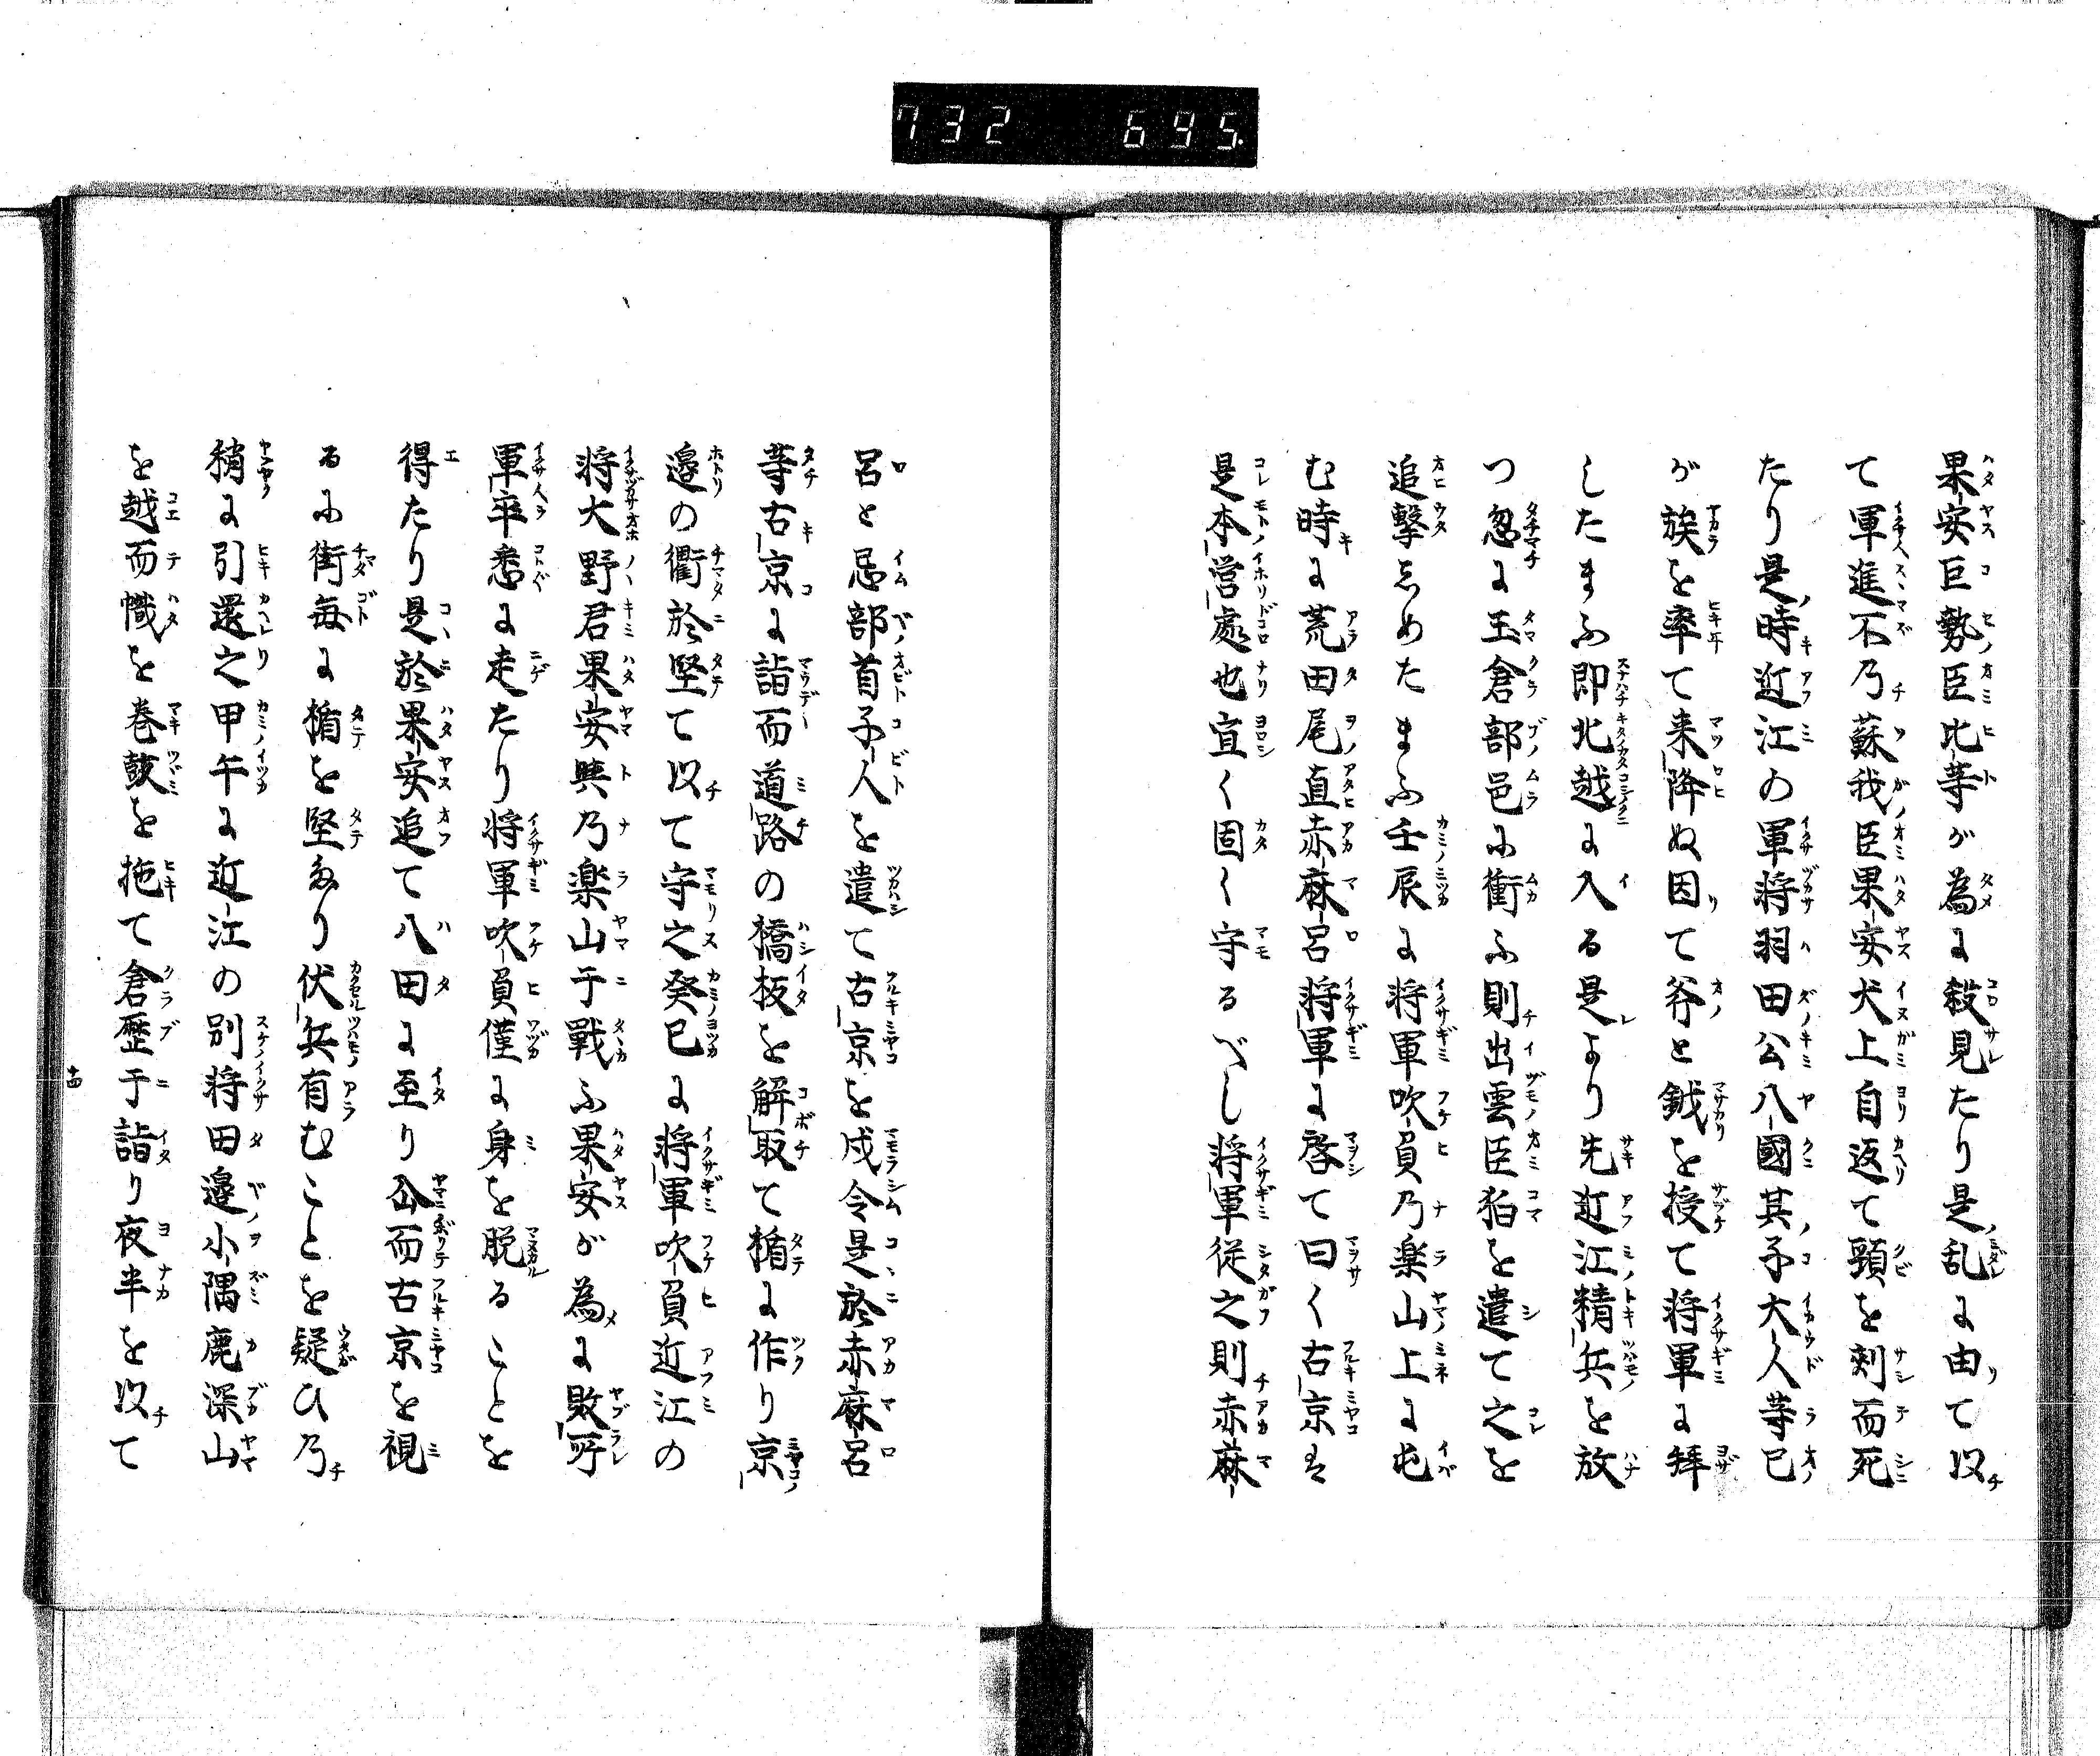 732 695.
果安巨勢臣比等が為に殺見たり是乱に由て以
て軍進不乃蘇我臣果安犬上自返て頸を刺而死
たり是時近江の軍将羽田公八國其子大人等己
が族を率て来降ぬ因て斧と鉞を授て将軍に拜
したまふ即北越に入る是より先近江精兵を放
つ忽に玉倉部邑に衝ふ則出雲臣狛を遣て之を
追擊しめたまふ壬辰に将軍吹負乃楽山上に屯
む時に荒田尾直赤麻呂将軍に啓て曰く古京は
是本營處也宜く固く守るべし将軍従之則赤麻
呂と忌部首子人を遣て古京を戍令是於赤麻呂
等古京に詣而道路の橋板を解取て楯に作り京
邉の衢於竪て以て守之癸巳に将軍吹負近江の
将大野君果安與乃楽山于戰ふ果安が為に敗所
軍卒悉に走たり将軍吹負僅に身を脱ることを
得たり是於果安追て八田に至り仚而古京を視
るに街毎に楯を竪たり伏兵有むことを疑ひ乃
稍に引還之甲午に近江の別将田邉小隅鹿深山
を越而幟を巻鼓を拖て倉歴于詣り夜半を以て
十四